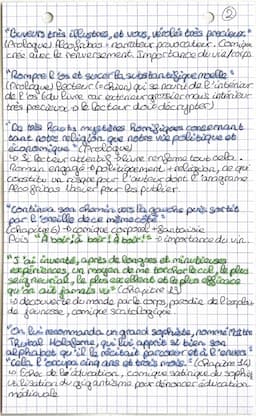 ②
"Buveurs très illustres, et vous, vérolés très précieux"
(Prologue) Alcofribas = narrateur provocateur. Comique
crée avec le renversement. Importance du vin/corps
"Rompre l'os et sucer la substantifique moelle"
(Prologue) Lecteur (= chien) qui se nourrit de l'intérieur
de l'os (du livre
très précieux → le lecteur doit décrypter)
"De très hauts mystères horrifiques concernant
tant notre religion que notre vie politique et
économique" (Prologue)
→ Si lecteur attentif → livre renferme tout cela.
Roman engagé → politiquement + religion, ce qui
constitue un risque pour l'auteur dont l'anagramme
Alcofribas Nasier pour les publier.
"Continua son chemin vers la gauche puis sortit
par l'oreille de ce même côté"
(Chapitre 6) → comique corporel + fantaisie
Puis "A boire, à boire ! A boire !" → importance du vin
"J'ai inventé, après de longues et minutieuses
expériences, un moyen de me torcher le cul, le plus
seigneurial, le plus excellent et le plus efficace
qu'on ait jamais vu" (Chapitre 13)
→ découverte du monde par le corps, parodie de l'exploit
de jeunesse, comique scatologique
"On lui recommanda un grand sophiste, nommé Maître
Thubal Holoferne, qui lui apprit si bien son
alphabet qu'il le récitait par cœur et à l'envers"
"Cela l'occupa cinq ans et trois mois." (Chapitre 14)
→ Echec de l'éducation, comique satirique du sophiste
utilisation du gigantisme pour dénoncer éducation
médiévale